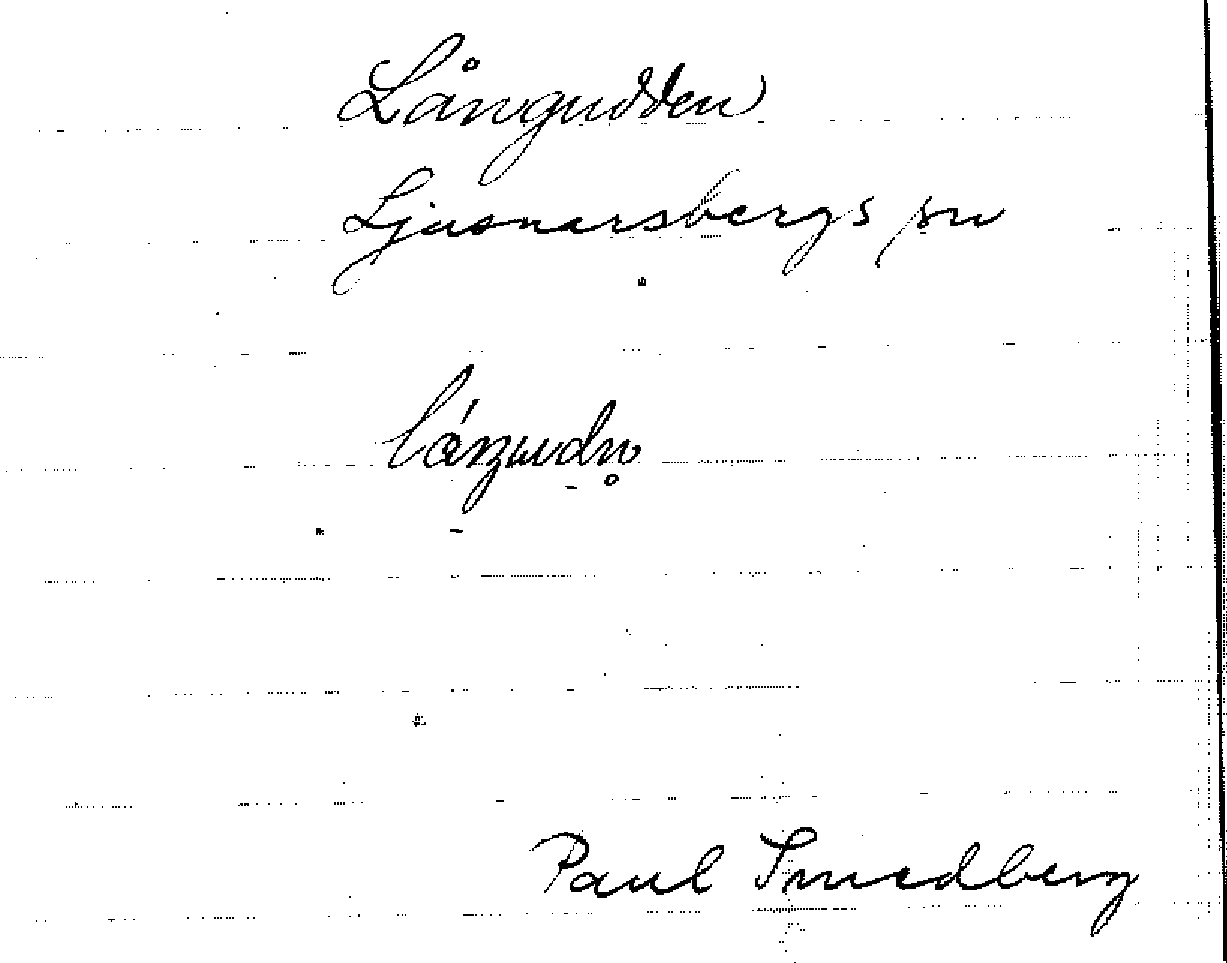 Långudden
Ljusnarsbergs sn
Paul Smedberg